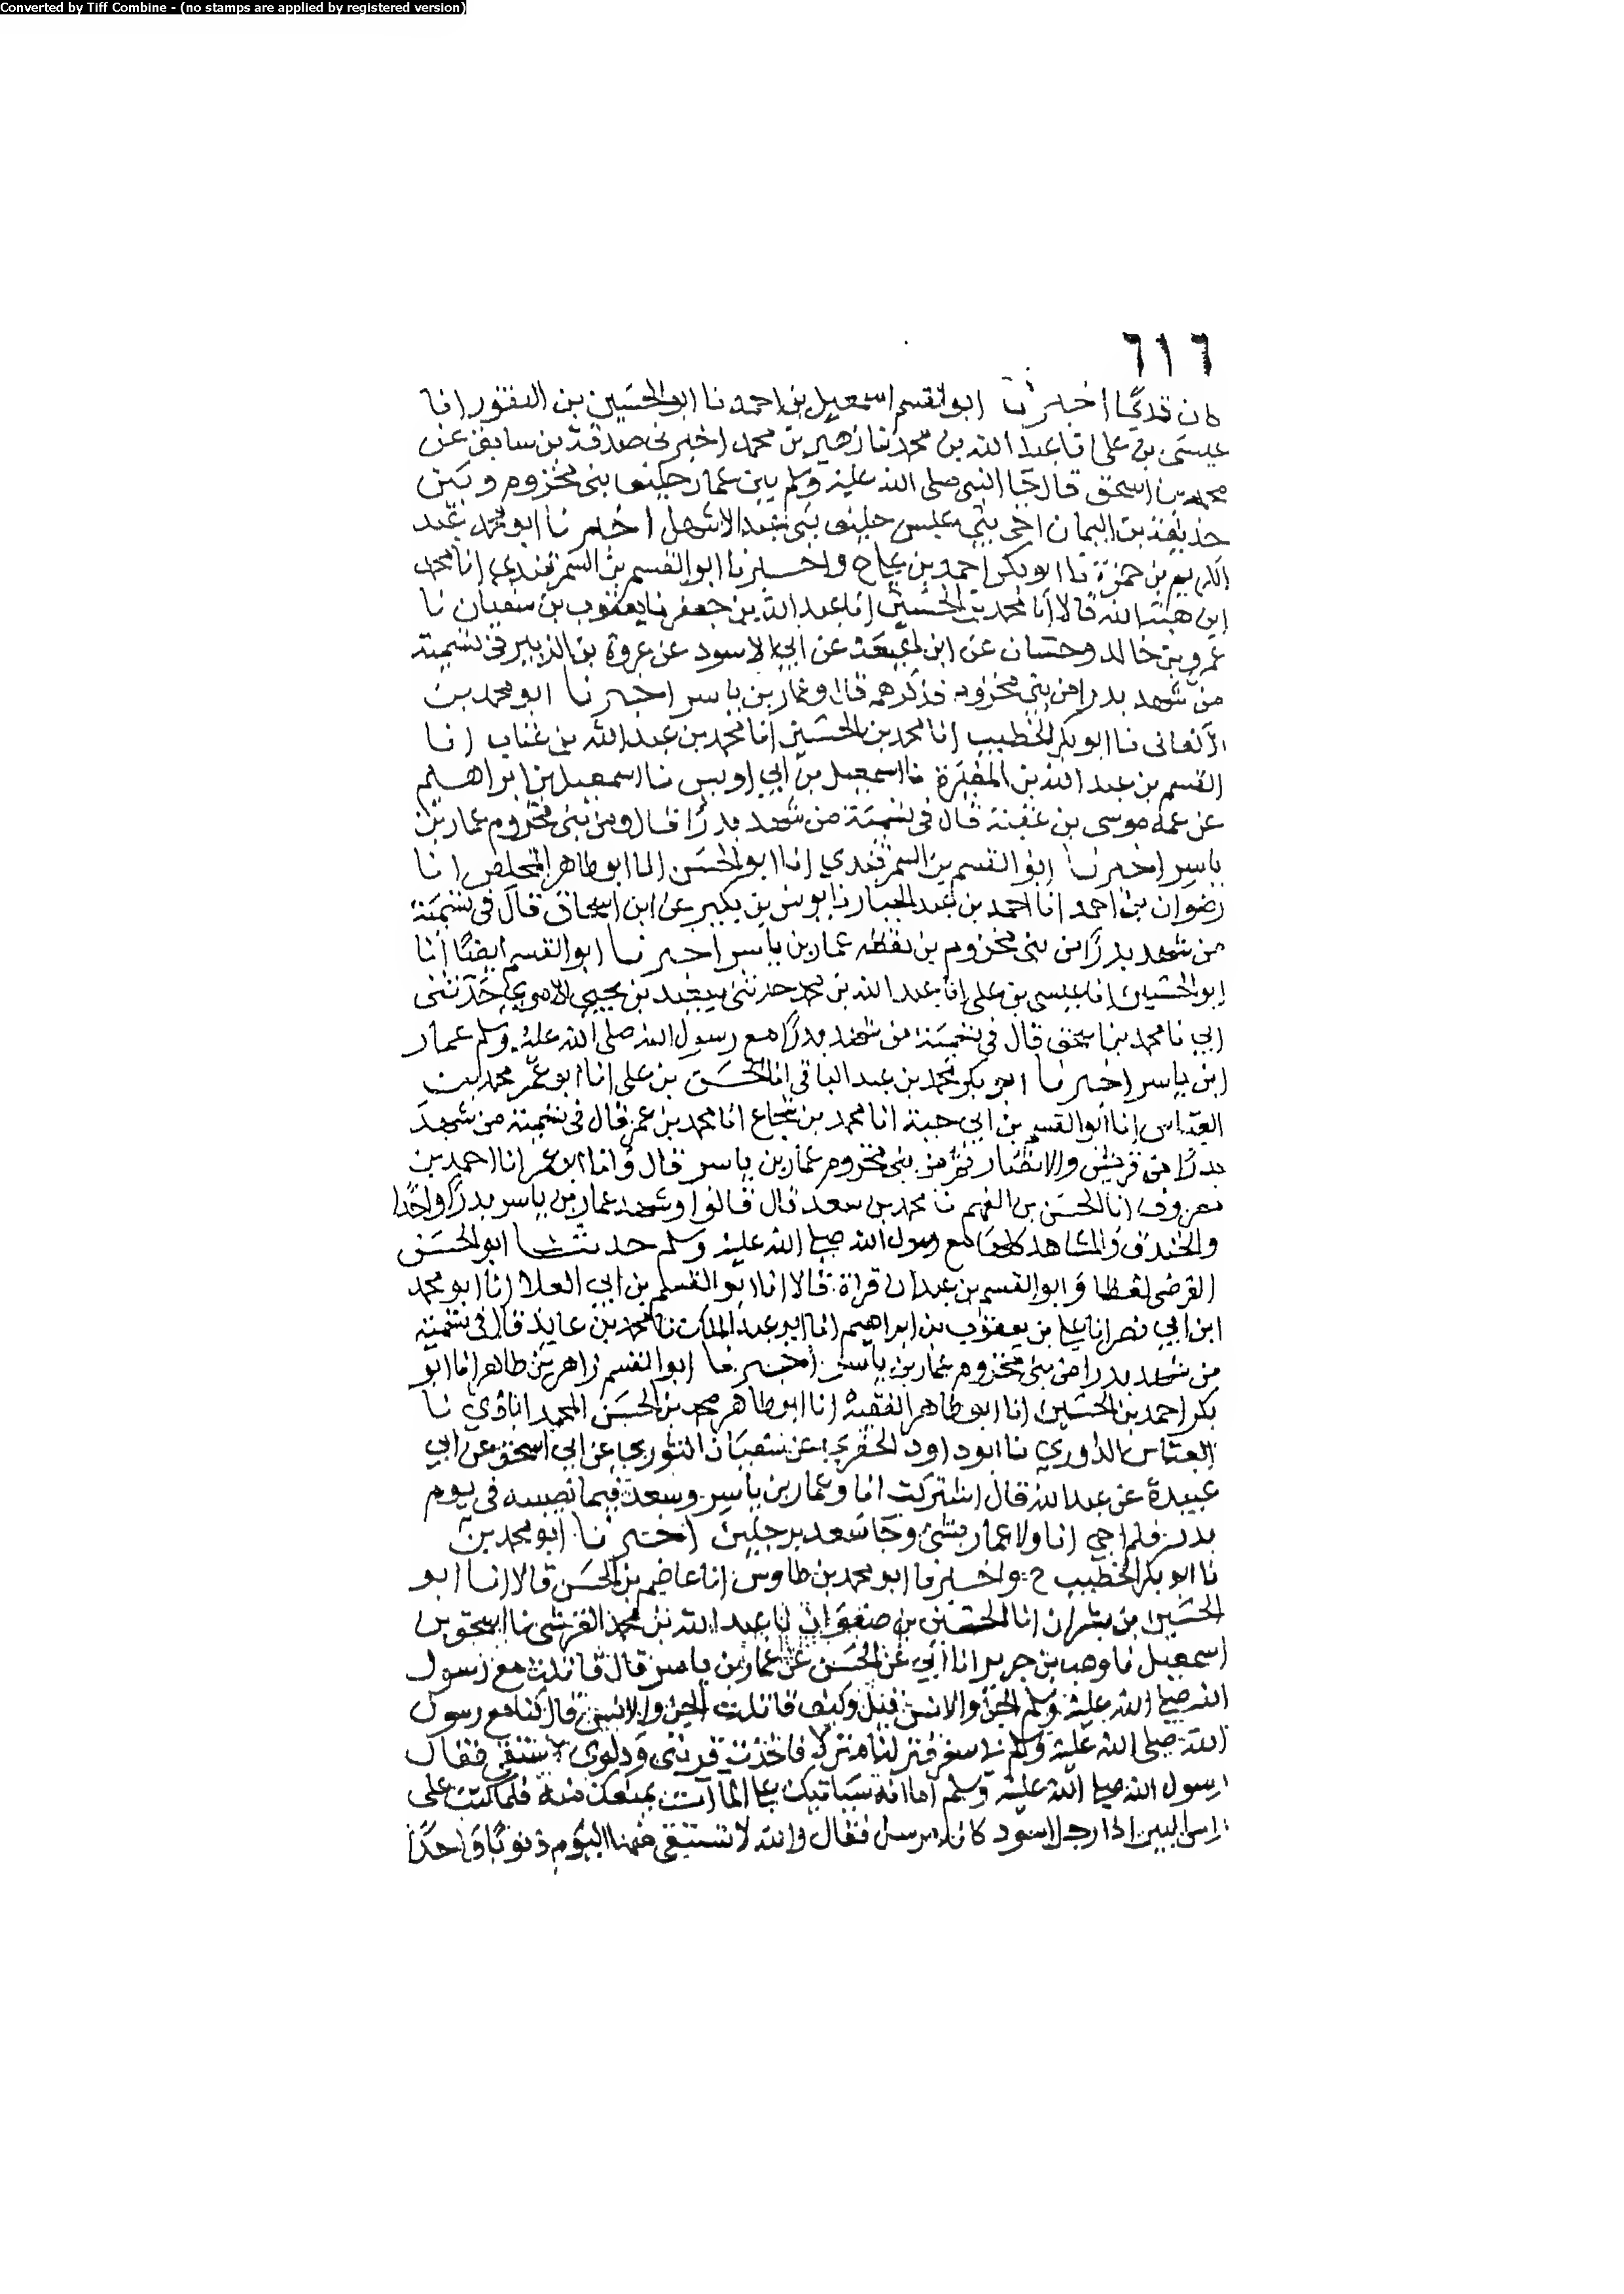 Converted by Tiff Combine - (no stamps are applied by registered version)
٦١٦
كان قديما اخبرنا ابو القسم اسمعيل بن احمد نا ابو الحسين بن النقور انا
عيسى بن على انا عبد الله بن محمد نا زهير بن محمد اخبرنى صدقة بن سابق عن
محمد بن اسحق قال اخا النبى صلى الله عليه وسلم بين عمار حليف بنى مخزوم وبين
حذيفة بن اليمان اخى بنى عبس حليف بنى عبد الاشهل اخبرنا ابو محمد عبد
الكريم بن حمزة نا ابو بكر احمد بن على ح واخبرنا ابو القسم بن السمرقندي انا محمد
ابن هبة الله قالا انا محمد بن الحسين انا عبد الله بن جعفر نا يعقوب بن سفيان نا
عمرو بن خالد وحسان عن ابن لهيعة عن ابي الاسود عن عروة بن الزبير فى تسمية
من شهد بدرا من بنى مخزوم فذكرهم قال وعمار بن ياسر اخبرنا ابو محمد بن
الاكفانى نا ابو بكر الخطيب انا محمد بن الحسين انا محمد بن عبد الله بن عتاب انا
القسم بن عبد الله بن المغيرة نا اسمعيل بن ابي اويس نا اسمعيل بن ابراهيم
عن عمه موسى بن عقبة قال فى تسمية من شهد بدرا قال ومن بنى مخزوم عمار بن
ياسر اخبرنا ابو القسم بن السمرقندي انا ابو الحسن انا ابو طاهر المخلص انا
رضوان بن احمد انا احمد بن عبد الجبار نا يونس بن بكير عن ابن اسحاق قال فى تسمية
من شهد بدرا من بنى مخزوم بن يقظه عمار بن ياسر اخبرنا ابو القسم ايضا انا
ابو الحسين انا عيسى بن على انا عبد الله بن محمد حدثنى سعيد بن يحيى الاموي حدثنى
ابي نا محمد بن اسحق قال فى تسمية من شهد بدرا مع رسول الله صلى الله عليه وسلم عمار
ابن ياسر اخبرنا ابو بكر محمد بن عبد الباقى انا الحسن بن على انا ابو عمر محمد بن
العباس انا ابو القسم بن ابي حية انا محمد بن شجاع انا محمد بن عمر قال فى تسمية من شهد
بدرا من قريش والانصار من بنى مخزوم عمار بن ياسر قال وانا ابو عمر انا احمد بن
معروف انا الحسن بن الفهم نا محمد بن سعد قال قالوا وشهد عمار بن ياسر بدرا واحدا
والخندق والمشاهد كلها مع رسول الله صلى الله عليه وسلم حدثنا ابو الحسن
الفرضى لفظا وابو القسم بن عبدان قراة قالا انا ابو القسم بن ابي العلا انا ابو محمد
ابن ابي نصر انا على بن يعقوب بن ابراهيم انا ابو عبد الملك نا محمد بن عايذ قال فى تسمية
من شهد بدرا من بنى مخزوم عمار بن ياسر اخبرنا ابو القسم زاهر بن طاهر انا ابو
بكر احمد بن الحسين انا ابو طاهر الفقيه انا ابو طاهر محمد بن الحسن المحمداباذي نا
العباس الدوري نا ابو داود الحفري عن سفيان الثوري عن ابي اسحق عن ابي
عبيدة عن عبد الله قال اشتركت انا وعمار بن ياسر وسعد فيما نصيبه فى يوم
بدر فلم اجي انا ولا عمار بشئ وجا سعد برجلين اخبرنا ابو محمد بن
نا ابو بكر الخطيب ح واخبرنا ابو محمد بن طاوس انا عاصم بن الحسن قالا انا ابو
الحسين بن بشران انا الحسين بن صفوان نا عبد الله بن محمد القرشى نا اسحق بن
اسمعيل نا وهب بن جرير انا ابي عن الحسن عن عمار بن ياسر قال قاتلت مع رسول
الله صلى الله عليه وسلم الجن والانس قيل وكيف قاتلت الجن والانس قال كنا مع رسول
الله صلى الله عليه وسلم فى سفر فنزلنا منزلا فاخذت قربتى ودلوى لاستقى فقال
رسول الله صلى الله عليه وسلم اما انه سياتيك على الما آت يمنعك منه فلما كنت على
راس البير اذا رجل اسود كانه مرس فقال والله لا تستقى منها اليوم ذنوبا واحدا